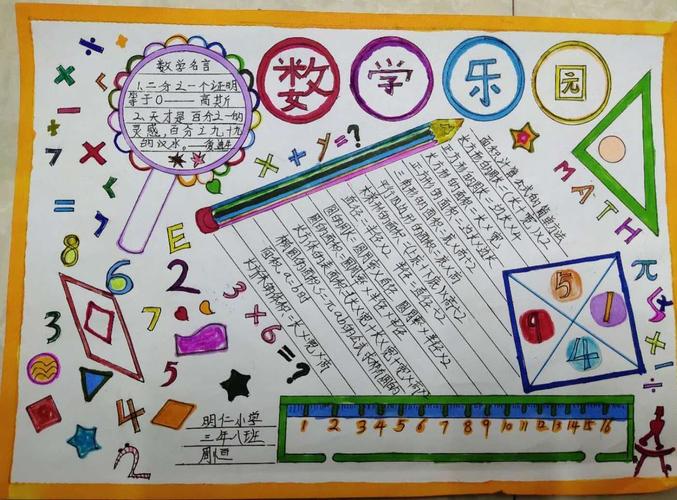 数学乐园
数学名言
1.二分之一个证明
等于0——高斯
2.天才是百分之一的
灵感,百分之九十九
的汉水。
x+y=?
面积计算公式的简单方法
长方形的周长=(长+宽)×2
正方形的周长=边长×4
长方形的面积=长×宽
正方形的面积=边长×边长
三角形的面积=底×高÷2
平行四边形的面积=底×高
直径=半径×2 半径=直径÷2
圆的周长=圆周率×直径 圆周率×半径×2
圆的面积=圆周率×半径×半径
长方体的体积=长×宽×高
MATH
π
E
8
6
2
7
3
7
5
4
2
3+6=?
5
1
9
4
1 2 3 4 5 6 7 8 9 10 11 12 13 14 15 16
明仁小学
三年八班